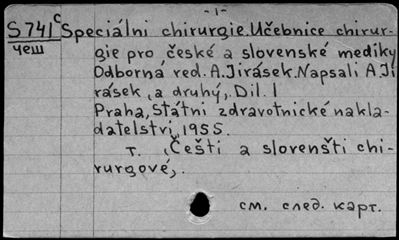 -1-
S741c Speciálni chirurgie. Učebnice chirur-
чеш gie pro české a slovenské mediky
Odborná red. A. Jirásek. Napsali A. Ji
rásek, a druhý,. Díl. 1
Praha, Státni zdravotnické nakla-
datelství, 1955.
т. „Čeští a slovenští chi-
rurgové„.
см. след. карт.